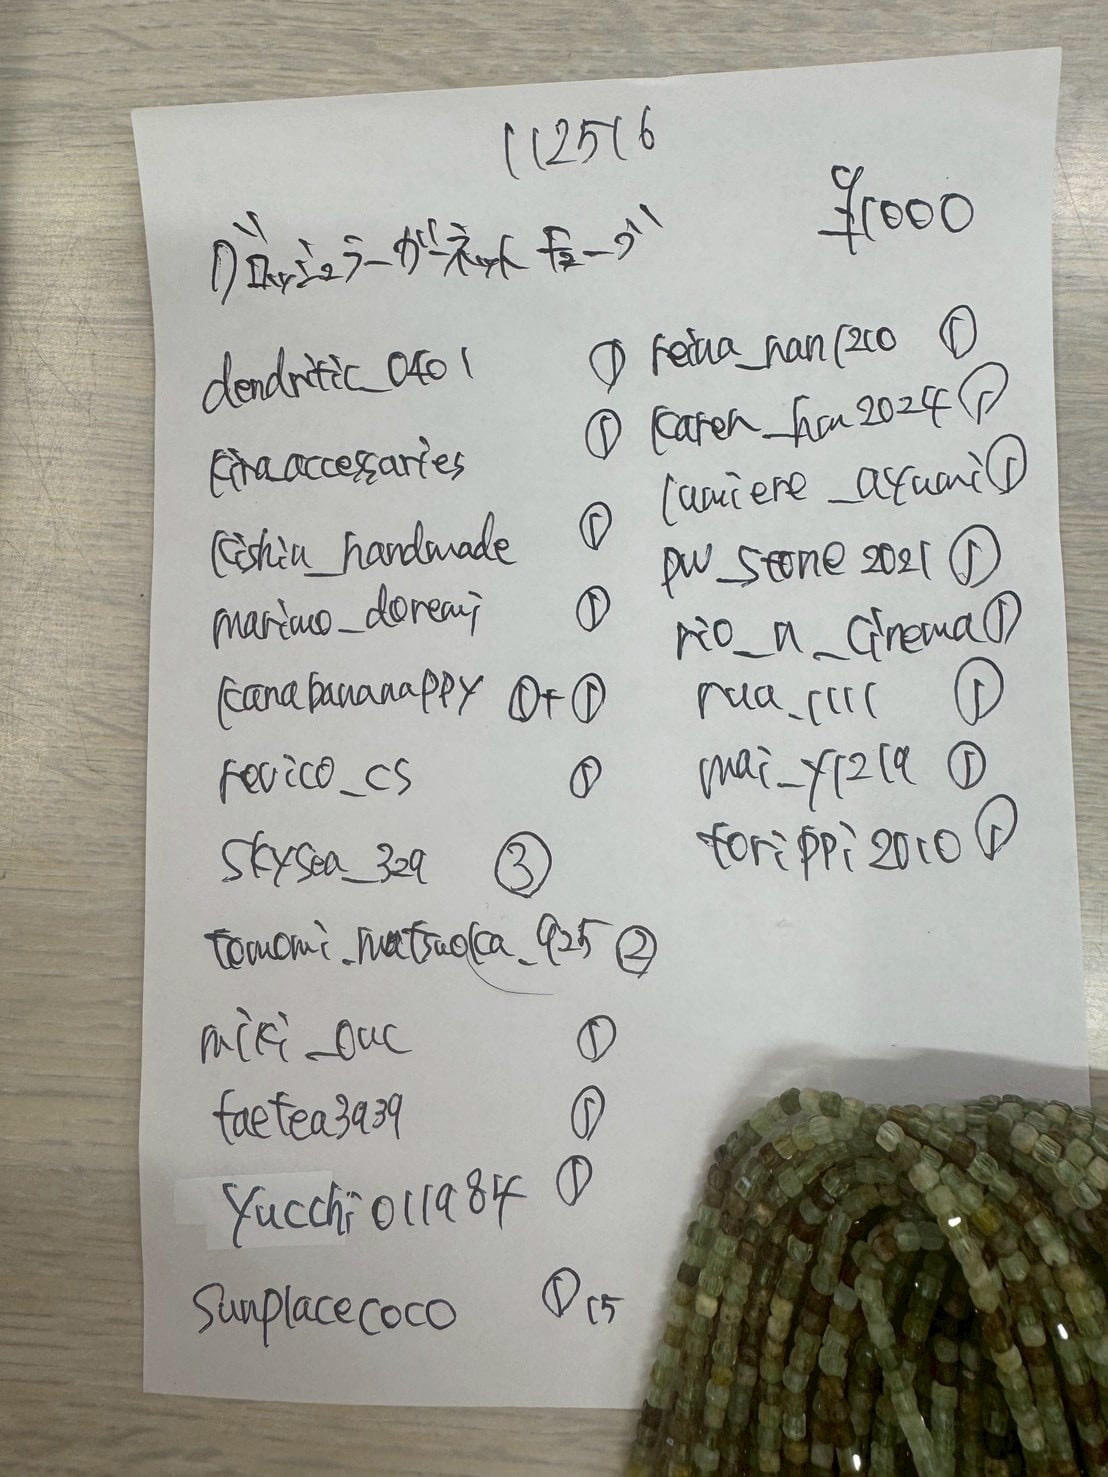 112516
¥1000
グロッシュラーガーネット キューブ
dendritic_0401 ①
kiraaccessaries ①
kishin_handmade ①
marimo_doremi ①
kanabananappy ①+①
revico_cs ①
skysea_329 ③
tomomi_matsuoka_925 ②
miki_ouc ①
taetea3939 ①
yucchi011984 ①
sunplacecoco ① 15
reina_nan1210 ①
karen_hau2024 ①
lumiere_ayumi ①
pw_stone2021 ①
rio_n_cinema ①
rua_1111 ①
mai_y1219 ①
torippi2010 ①